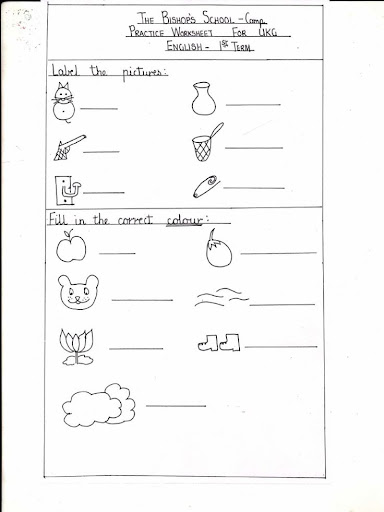 The Bishop's School - Camp
Practice Worksheet For UKG
English - 1st Term
Label the pictures:
Fill in the correct colour: